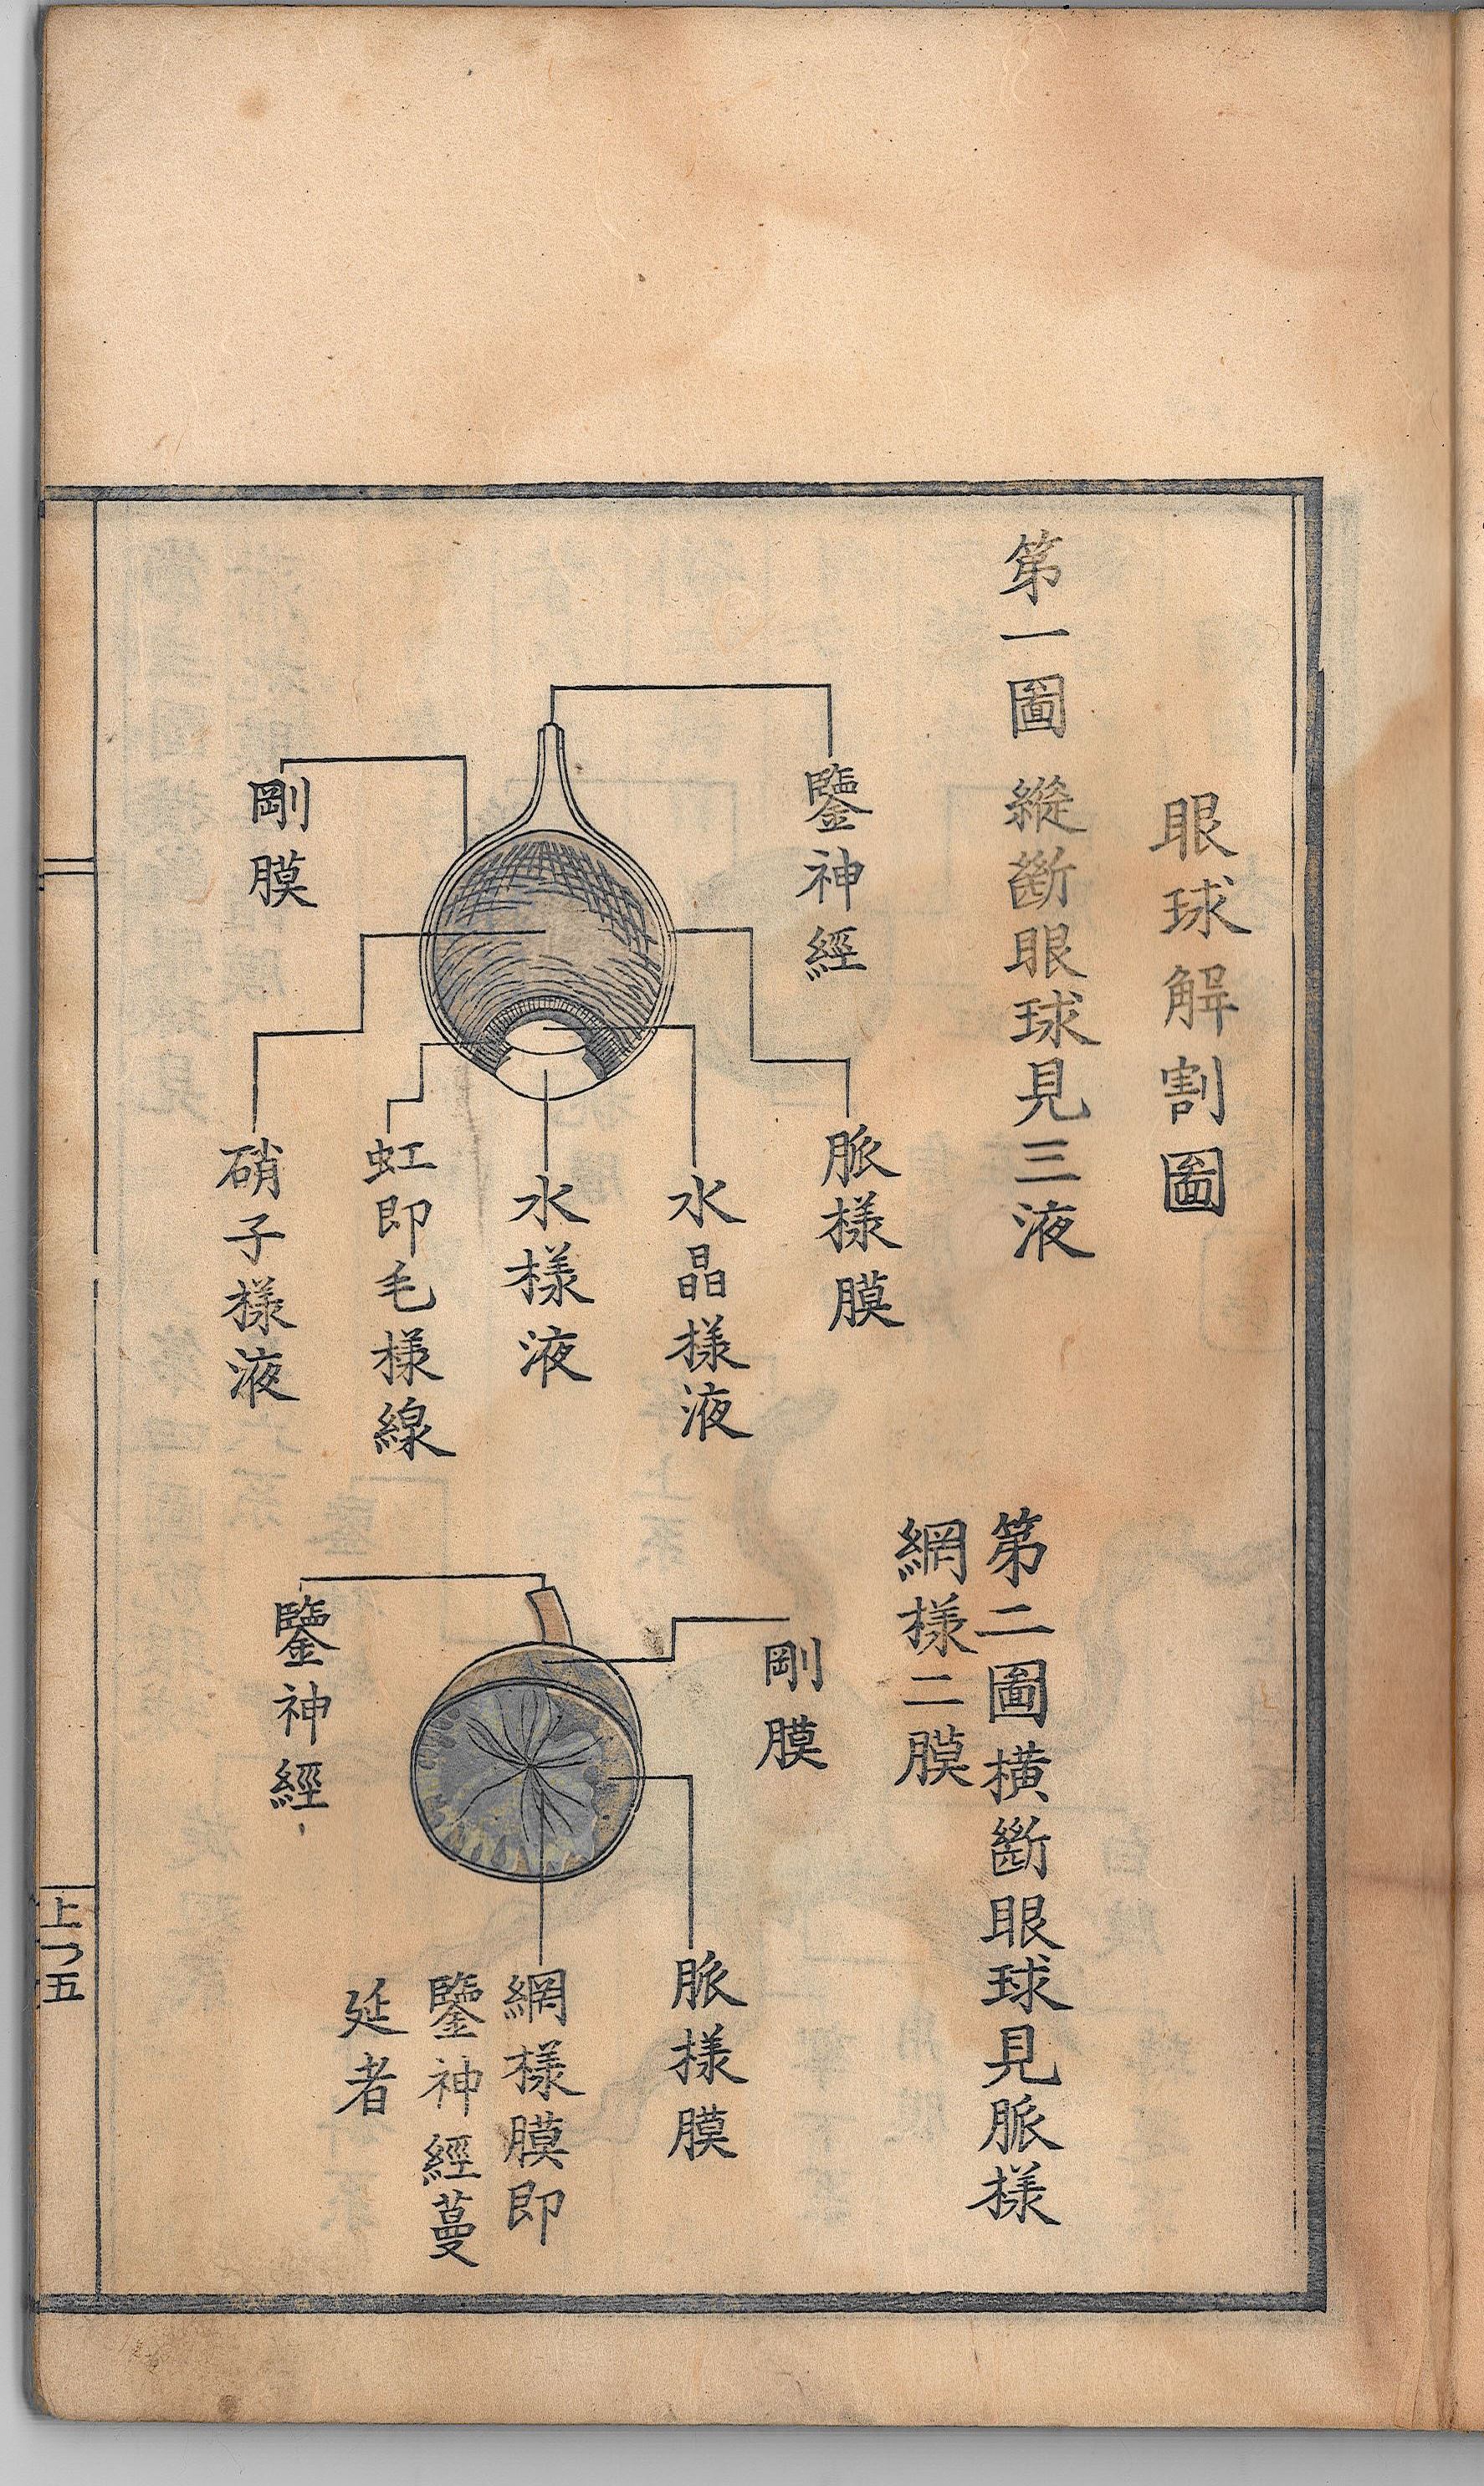 眼球解割圖
第一圖 縱斷眼球見三液
鑒神經
脈様膜
水晶様液
水様液
虹即毛様線
剛膜
硝子様液
第二圖橫斷眼球見脈様
網様二膜
剛膜
脈様膜
網様膜即
鑒神經蔓
延者
鑒神經
上ノ五